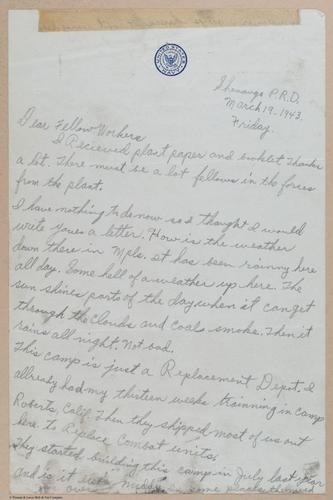 UNITED STATES NAVY
Shenango P.R.D.
March 19-1943.
Friday.
Dear Fellow Workers
I Recieved plant paper and booklet Thanks
a lot. There must be a lot fellows in the forces
from the plant.
I have nothing to do now so I thought I would
write youse a letter. How is the weather
down there in Mpls. It has been rainny here
all day. Some hell of a weather up here. The
sun shines parts of the day when it can get
through the clouds and coals smoke. Then it
rains all night. Not bad.
This camp is just a Replacement Depot. I
allready had my thirteen weeks trainning in camp
Roberts, Calif. Then they shipped most of us out
here to Replace Combat units.
They started building this camp in July last year
and is it ever muddy in some places